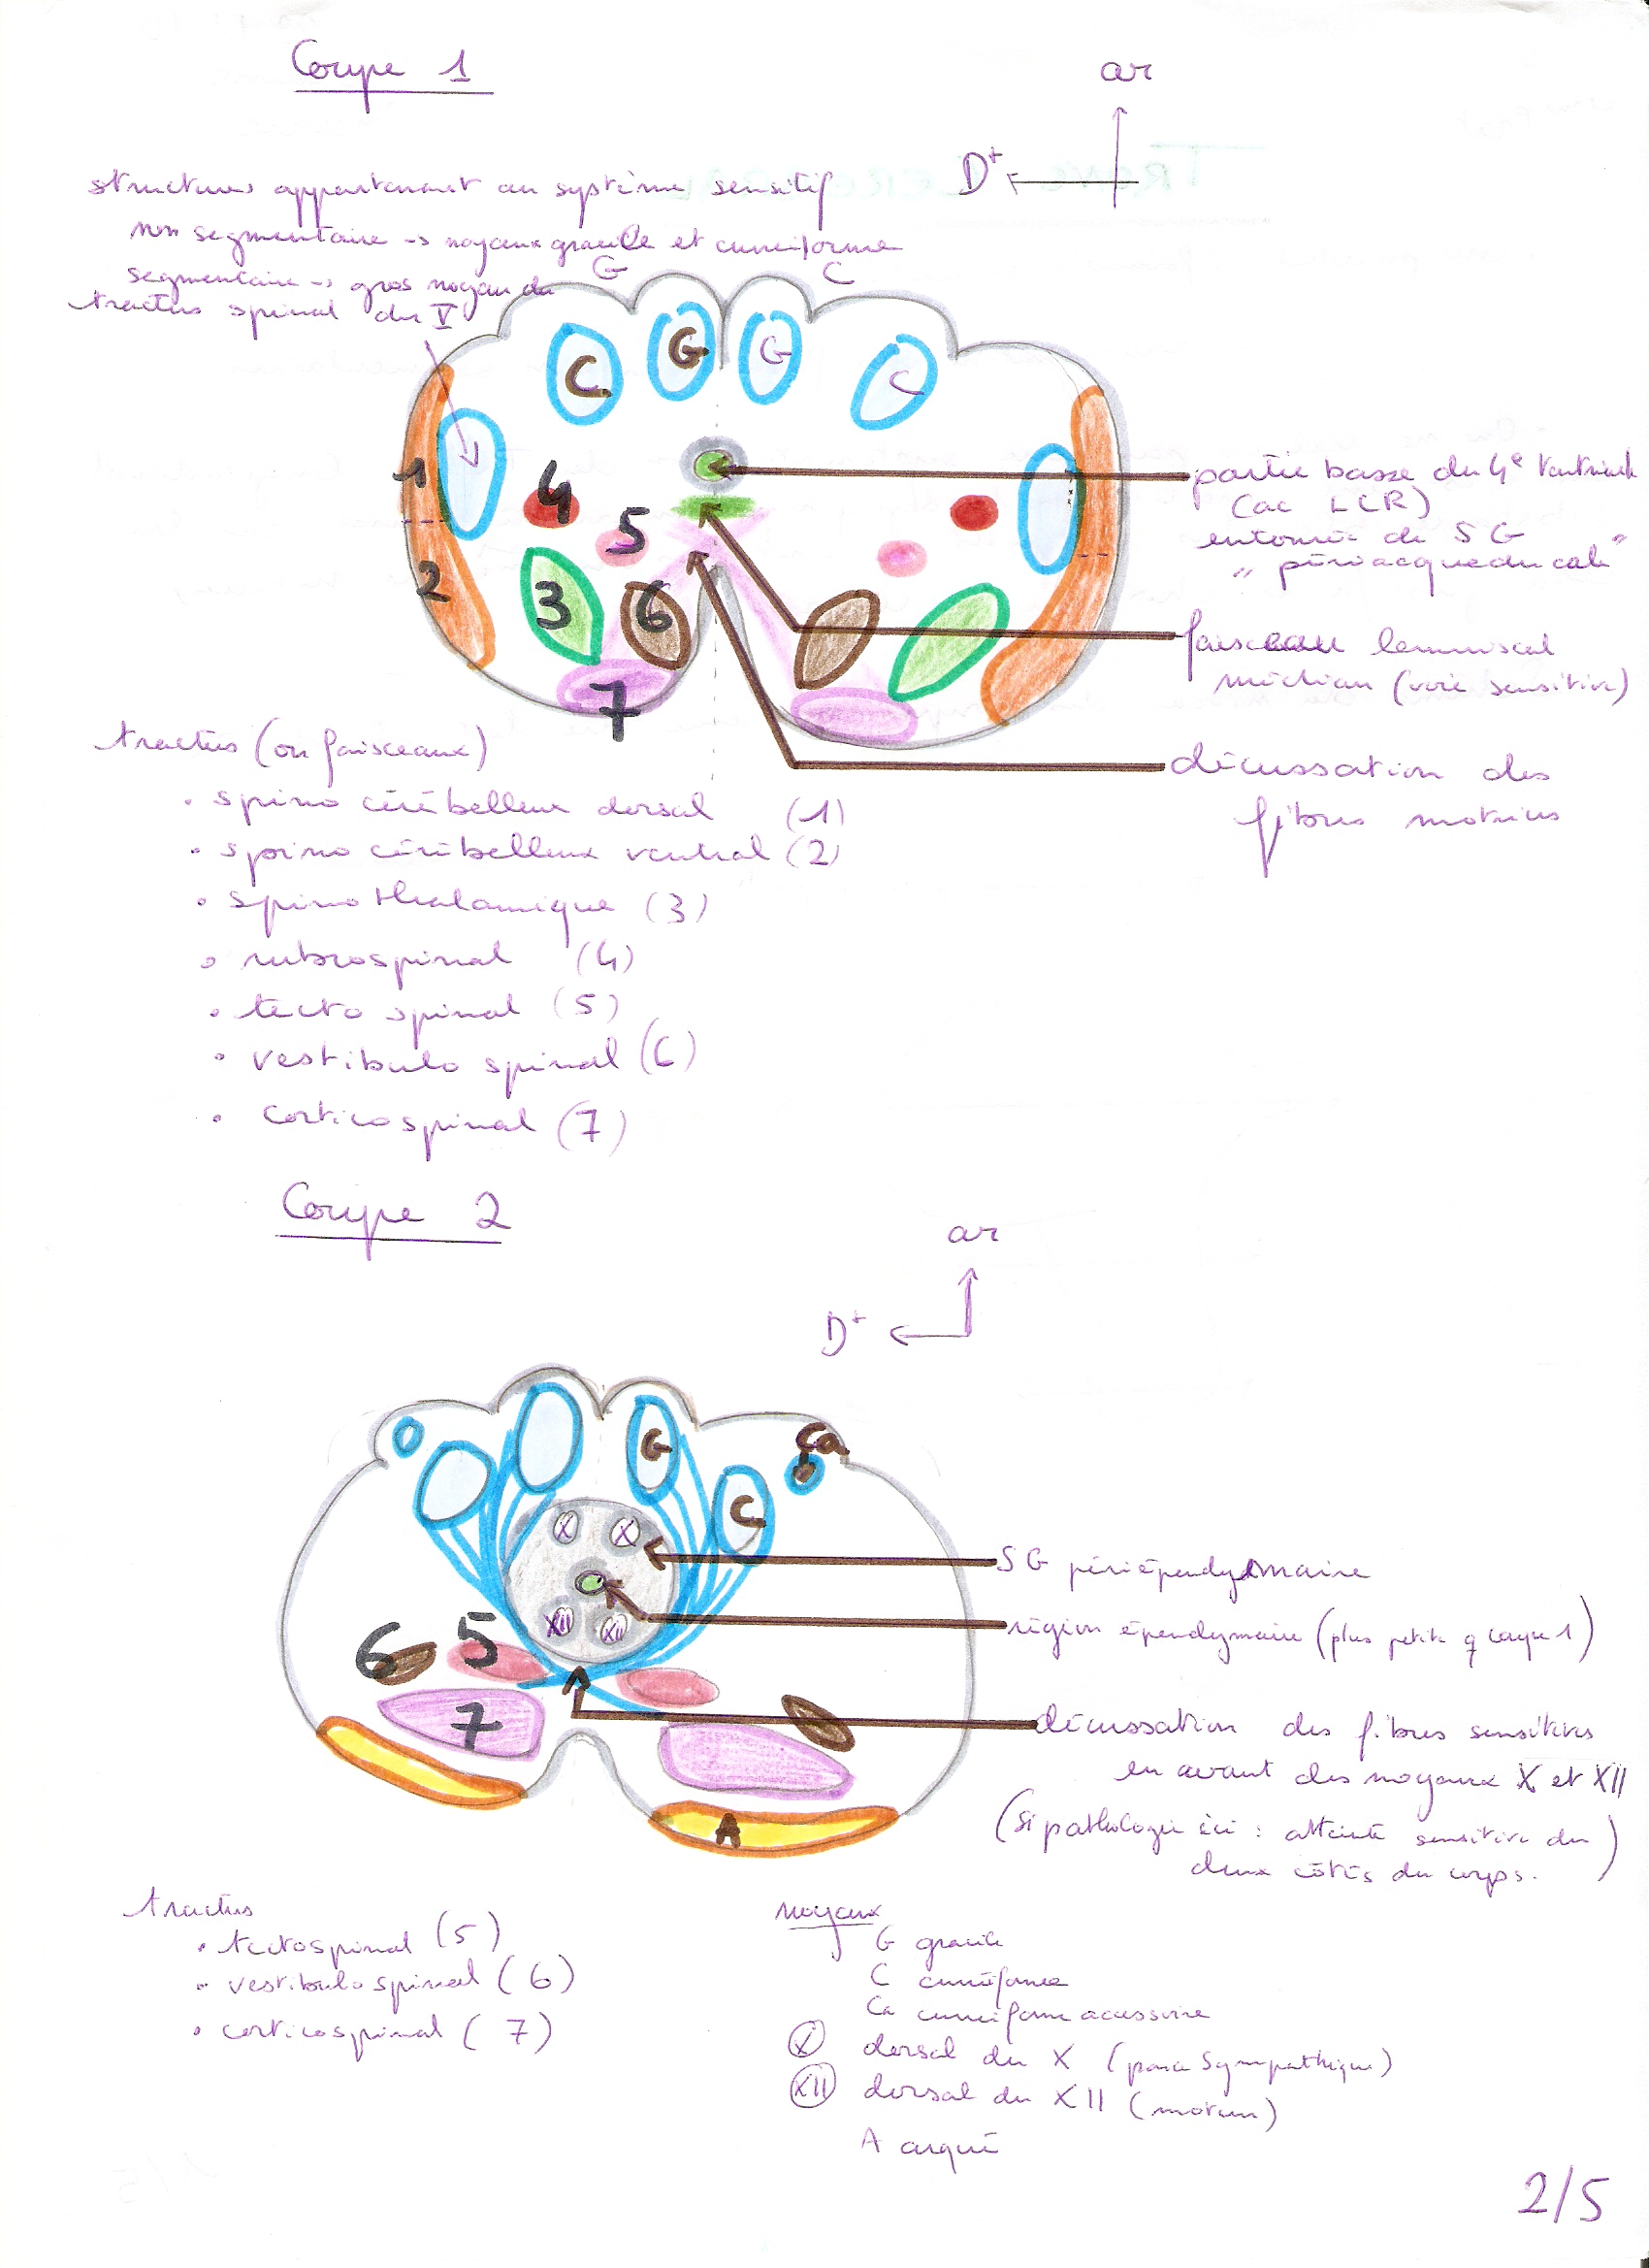 Coupe 1
ar
D+
structures appartenant au système sensitif
non segmentaire -> noyaux gracile et cunéiforme
segmentaire -> gros noyau du
tractus spinal du V
G
C
C
G
G
C
1
4
5
2
3
6
7
partie basse du 4e Ventricule
(ac LCR)
entourée de SG
" périacqueducale "
faisceau lemniscal
médian (voie sensitive)
décussation des
fibres motrices
tractus (ou faisceaux)
• spino cérébelleux dorsal (1)
• spino cérébelleux ventral (2)
• spinothalamique (3)
• rubrospinal (4)
• tecto spinal (5)
• vestibulo spinal (6)
• corticospinal (7)
Coupe 2
ar
D+
G
Ca
C
X
X
XII
XII
6
5
7
A
SG périépendymaire
région épendymaire (plus petite q coupe 1)
décussation des fibres sensitives
en avant des noyaux X et XII
(si pathologie ici : atteinte sensitive des
deux côtés du corps.)
tractus
• tectospinal (5)
• vestibulospinal (6)
• corticospinal (7)
noyaux
G gracile
C cunéiforme
Ca cunéiforme accessoire
X dorsal du X (para Sympathique)
XII dorsal du XII (moteur)
A arqué
2/5